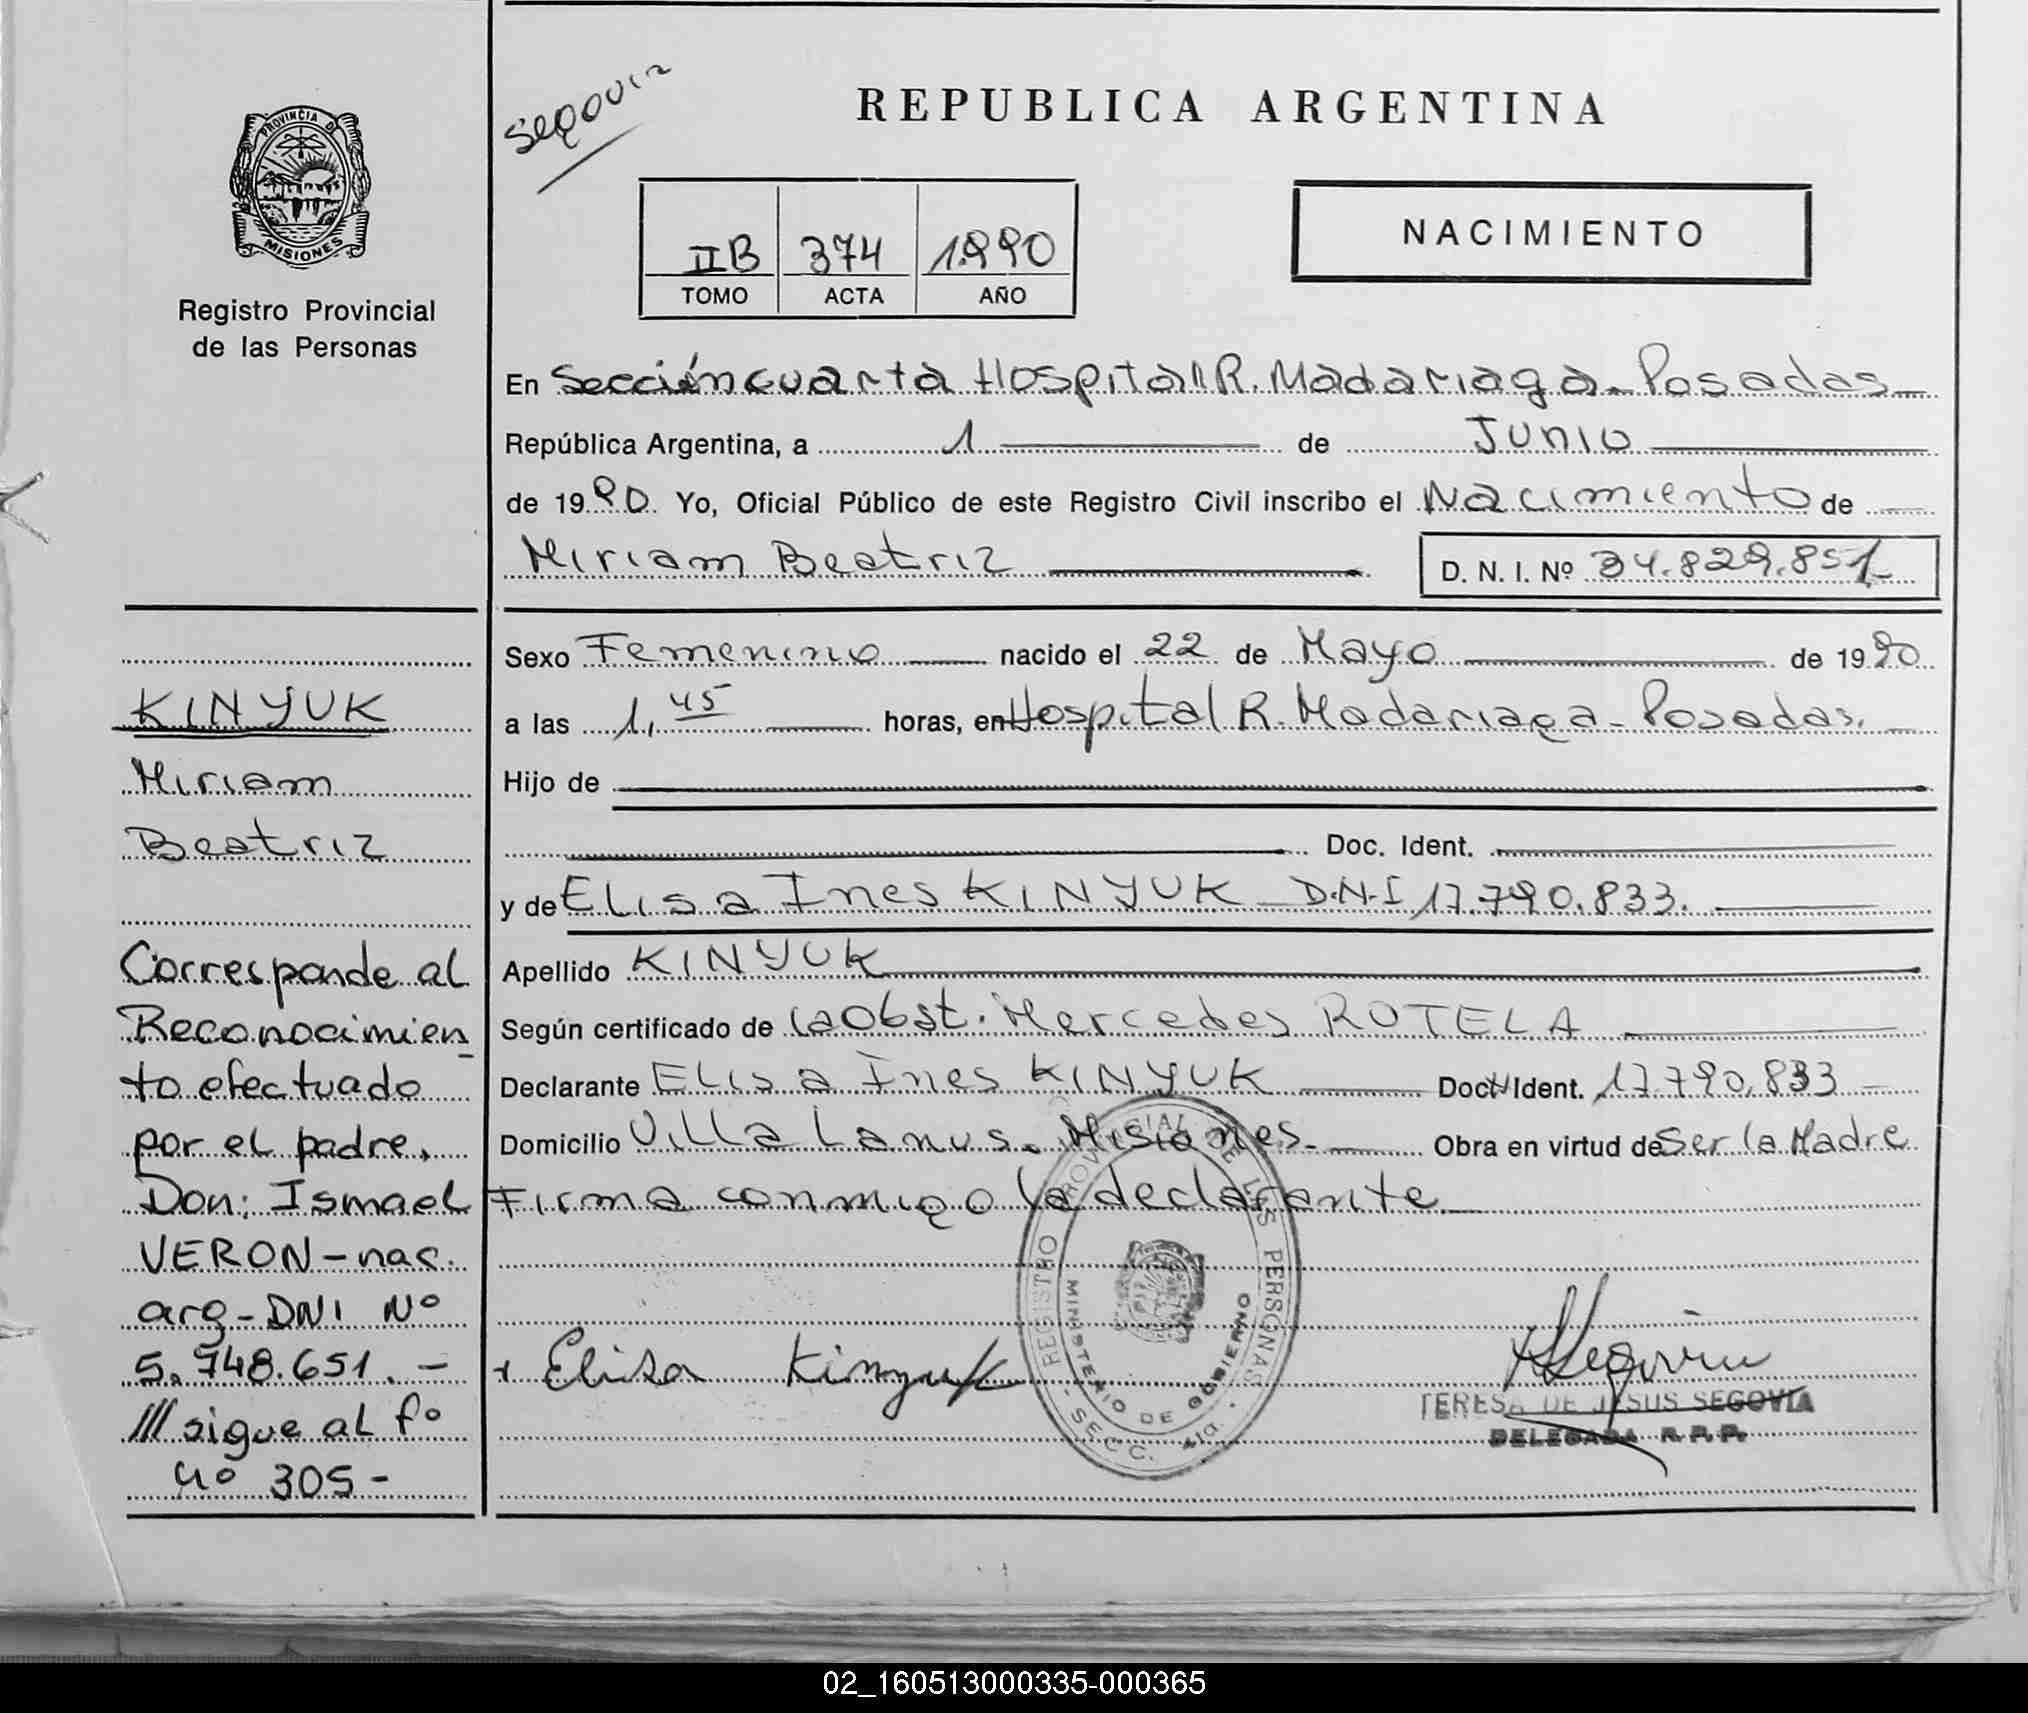 Segovia
REPUBLICA ARGENTINA
PROVINCIA DE
MISIONES
Registro Provincial
de las Personas
IIB 374 1.990
TOMO ACTA AÑO
NACIMIENTO
En Sección cuarta Hospital R. Madariaga - Posadas
República Argentina, a 1 de Junio
de 1990. Yo, Oficial Público de este Registro Civil inscribo el Nacimiento de
Miriam Beatriz D. N. I. Nº 34.829.851
Sexo Femenino nacido el 22 de Mayo de 1990
a las 1,45 horas, en Hospital R. Madariaga - Posadas.
Hijo de
Doc. Ident.
y de Elisa Ines KINYUK D.N.I 17.790.833.
Apellido KINYUK
Según certificado de la Obst. Mercedes ROTELA
Declarante Elisa Ines KINYUK Doc. Ident. 17.790.833
Domicilio Villa Lanus. Misiones. Obra en virtud de Ser la Madre
Firma conmigo la declarante
Elisa Kinyuk
TERESA DE JESUS SEGOVIA
DELEGADA R.P.P.
REGISTRO PROVINCIAL DE LAS PERSONAS
MINISTERIO DE GOBIERNO
- SECC. 4ta. -
KINYUK
Miriam
Beatriz
Corresponde al
Reconocimien
to efectuado
por el padre.
Don: Ismael
VERON - nac.
arg - DNI Nº
5.748.651. -
/// sigue al fº
nº 305 -
02_160513000335-000365